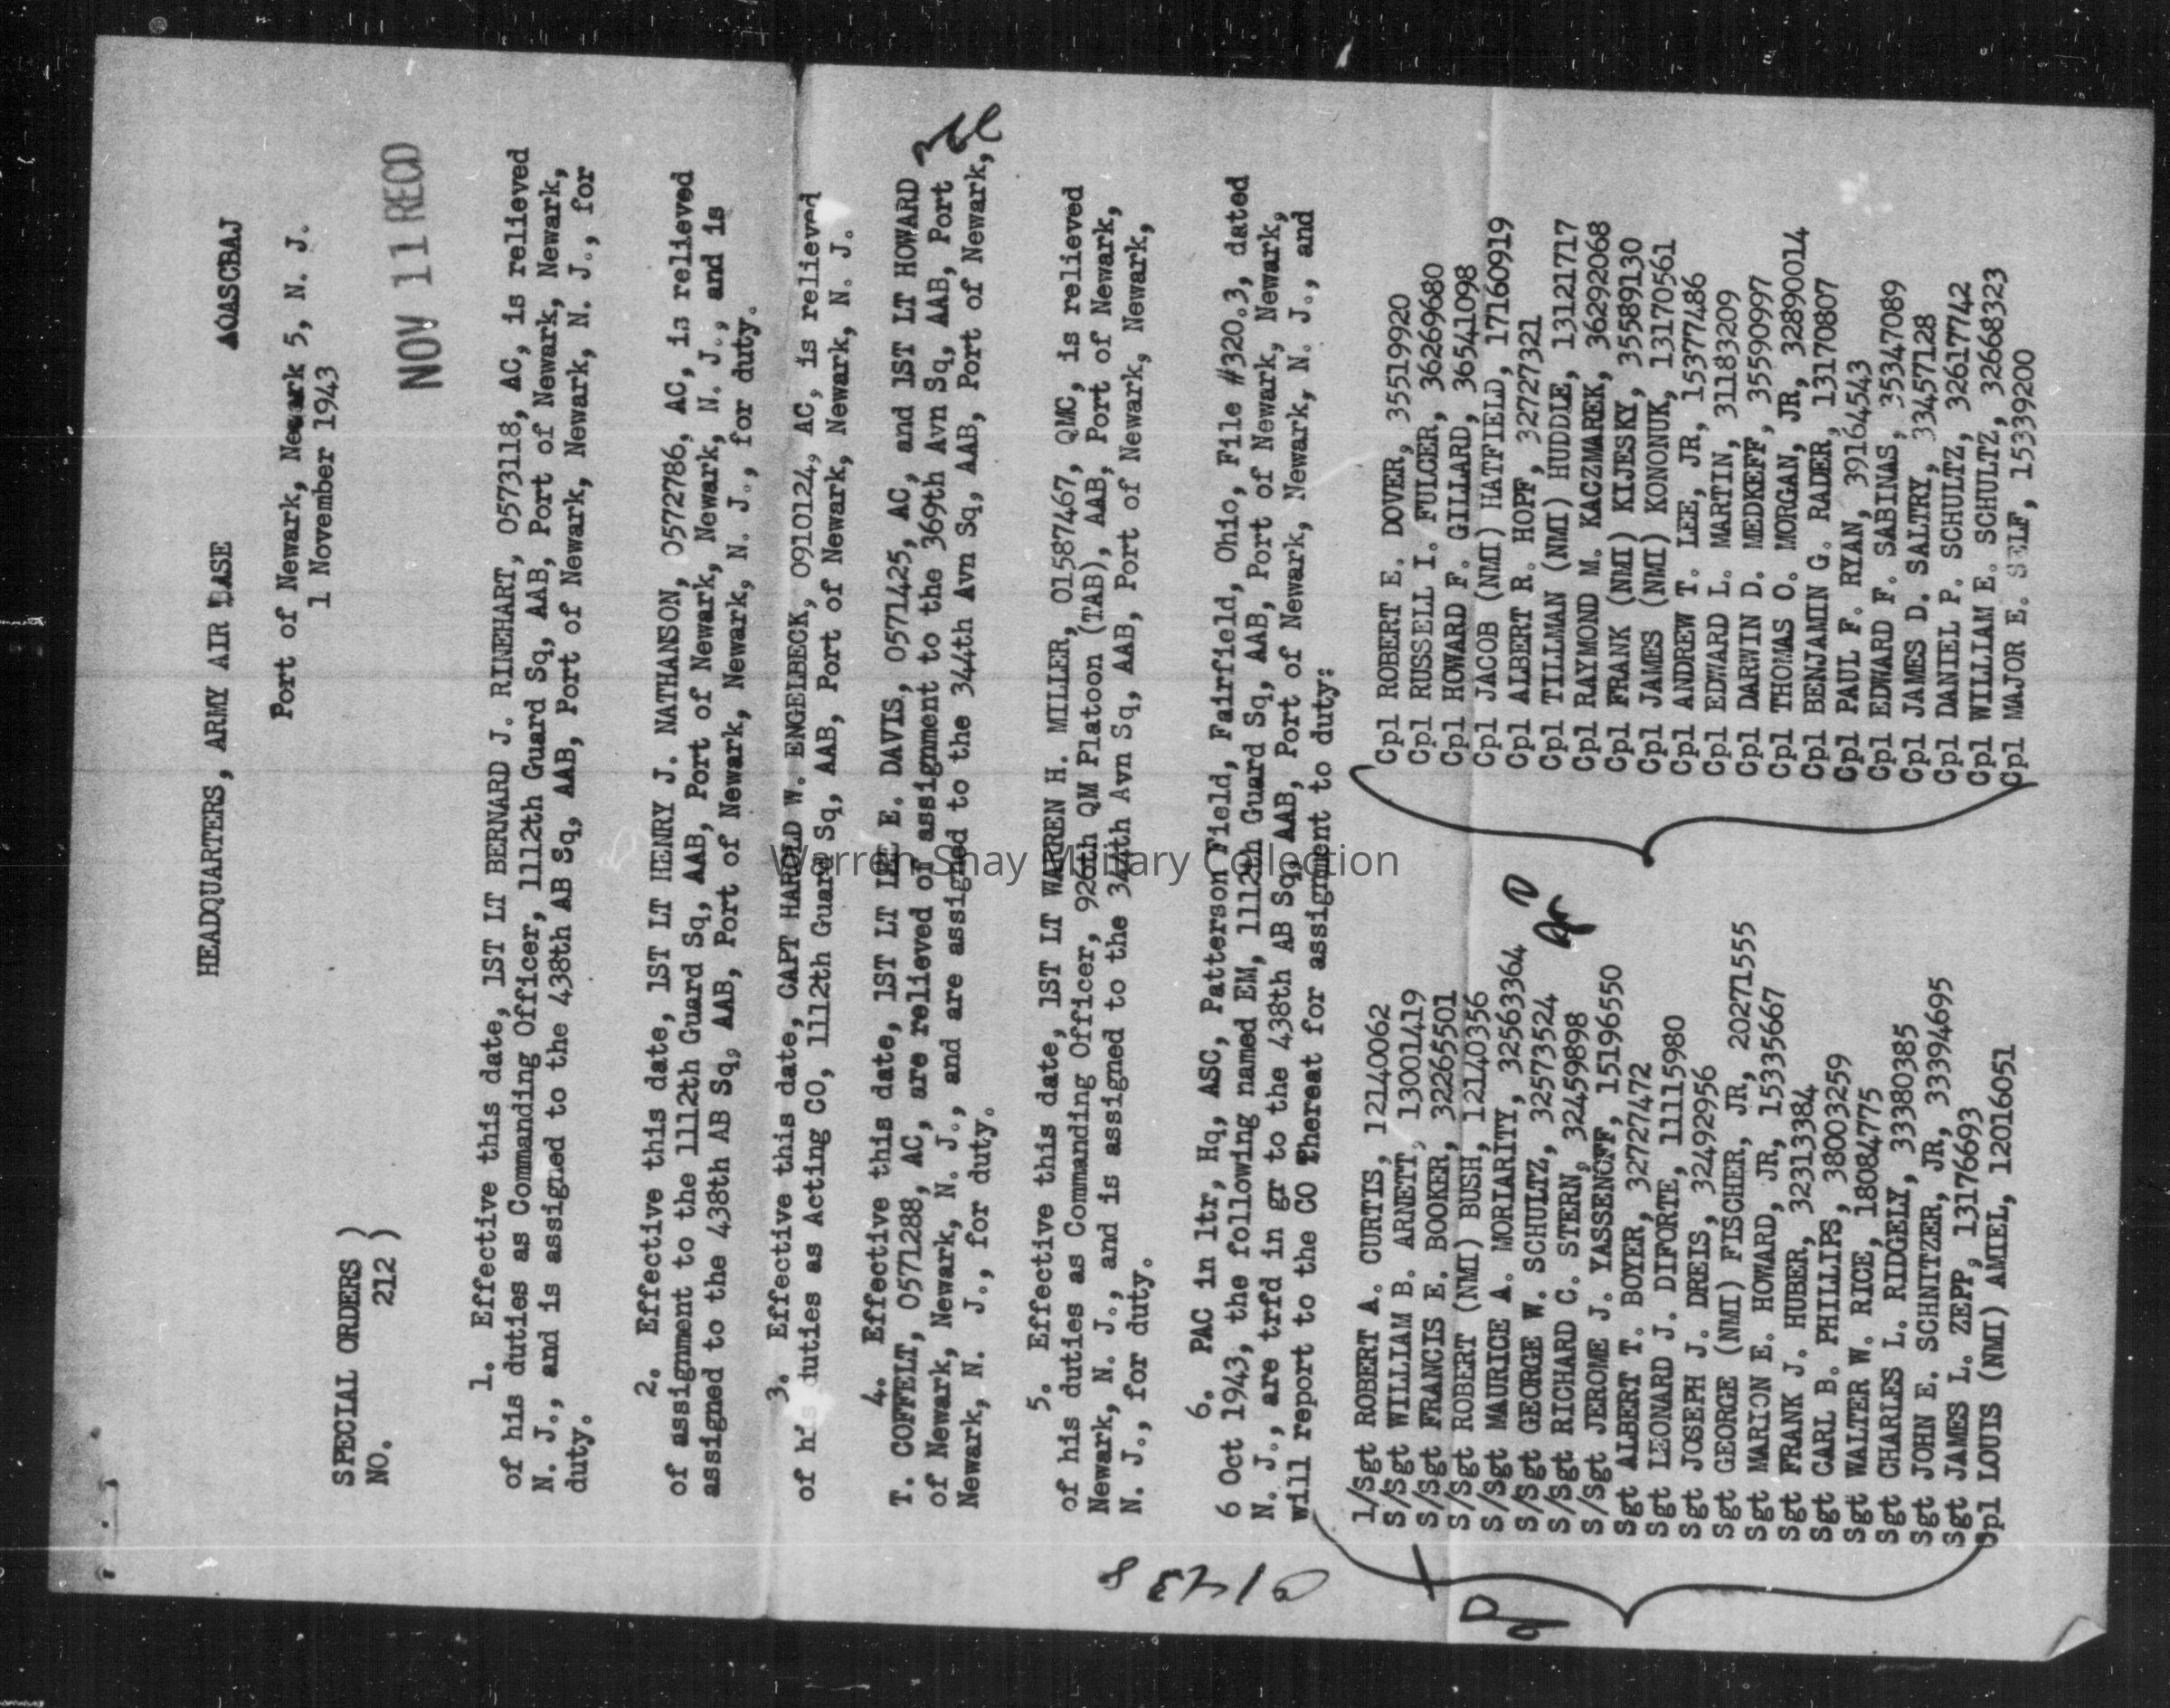 HEADQUARTERS, ARMY AIR BASE AQASCBAJ
Port of Newark, Newark 5, N. J.
1 November 1943
SPECIAL ORDERS )
NO. 212 )
NOV 11 RECD
1. Effective this date, 1ST LT BERNARD J. RINEHART, 0573118, AC, is relieved
of his duties as Commanding Officer, 1112th Guard Sq, AAB, Port of Newark, Newark,
N. J., and is assigned to the 438th AB Sq, AAB, Port of Newark, Newark, N. J., for
duty.
2. Effective this date, 1ST LT HENRY J. NATHANSON, 0572786, AC, is relieved
of assignment to the 1112th Guard Sq, AAB, Port of Newark, Newark, N. J., and is
assigned to the 438th AB Sq, AAB, Port of Newark, Newark, N. J., for duty.
3. Effective this date, CAPT HAROLD W. ENGELBECK, 0910124, AC, is relieved
of his duties as Acting CO, 1112th Guard Sq, AAB, Port of Newark, Newark, N. J.
4. Effective this date, 1ST LT LEE E. DAVIS, 0571425, AC, and 1ST LT HOWARD
T. COFFELT, 0571288, AC, are relieved of assignment to the 369th Avn Sq, AAB, Port
of Newark, Newark, N. J., and are assigned to the 344th Avn Sq, AAB, Port of Newark,
Newark, N. J., for duty.
5. Effective this date, 1ST LT WARREN H. MILLER, 01587467, QMC, is relieved
of his duties as Commanding Officer, 926th QM Platoon (TAB), AAB, Port of Newark,
Newark, N. J., and is assigned to the 344th Avn Sq, AAB, Port of Newark, Newark,
N. J., for duty.
6. PAC in ltr, Hq, ASC, Patterson Field, Fairfield, Ohio, File #320.3, dated
6 Oct 1943, the following named EM, 1112th Guard Sq, AAB, Port of Newark, Newark,
N. J., are trfd in gr to the 438th AB Sq, AAB, Port of Newark, Newark, N. J., and
will report to the CO Thereat for assignment to duty:
1/Sgt ROBERT A. CURTIS, 12140062
S/Sgt WILLIAM B. ARNETT, 13001419
S/Sgt FRANCIS E. BOOKER, 32265501
S/Sgt ROBERT (NMI) BUSH, 12140356
S/Sgt MAURICE A. MORIARITY, 32563364
S/Sgt GEORGE W. SCHULTZ, 32573524
S/Sgt RICHARD C. STERN, 32459898
S/Sgt JEROME J. YASSENOFF, 15196550
Sgt ALBERT T. BOYER, 32727472
Sgt LEONARD J. DIFORTE, 11115980
Sgt JOSEPH J. DREIS, 32492956
Sgt GEORGE (NMI) FISCHER, JR, 20271555
Sgt MARION E. HOWARD, JR, 15335667
Sgt FRANK J. HUBER, 32313384
Sgt CARL B. PHILLIPS, 38003259
Sgt WALTER W. RICE, 18084775
Sgt CHARLES L. RIDGELY, 33380385
Sgt JOHN E. SCHNITZER, JR, 33394695
Sgt JAMES L. ZEPP, 13176693
Cpl LOUIS (NMI) AMIEL, 12016051
Cpl ROBERT E. DOVER, 35519920
Cpl RUSSELL I. FULCER, 36269680
Cpl HOWARD F. GILLARD, 36541098
Cpl JACOB (NMI) HATFIELD, 17160919
Cpl ALBERT R. HOPF, 32727321
Cpl TILLMAN (NMI) HUDDLE, 13121717
Cpl RAYMOND M. KACZMAREK, 36292068
Cpl FRANK (NMI) KIJESKY, 35589130
Cpl JAMES (NMI) KONONUK, 13170561
Cpl ANDREW T. LEE, JR, 15377486
Cpl EDWARD L. MARTIN, 31183209
Cpl DARWIN D. MEDKEFF, 35590997
Cpl THOMAS O. MORGAN, JR, 32890014
Cpl BENJAMIN G. RADER, 13170807
Cpl PAUL F. RYAN, 39164543
Cpl EDWARD F. SABINAS, 35347089
Cpl JAMES D. SALTRY, 33457128
Cpl DANIEL P. SCHULTZ, 32617742
Cpl WILLIAM E. SCHULTZ, 32668323
Cpl MAJOR E. SELF, 15339200
Warren Shay Military Collection